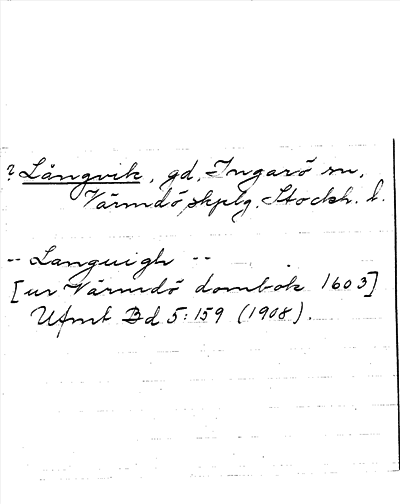 ? Långvik, gd, Ingarö sn,
Värmdö skplg. Stockh. l.
-- Languigh --
[ur Värmdö dombok 1603]
Ufmt Bd 5:159 (1908).